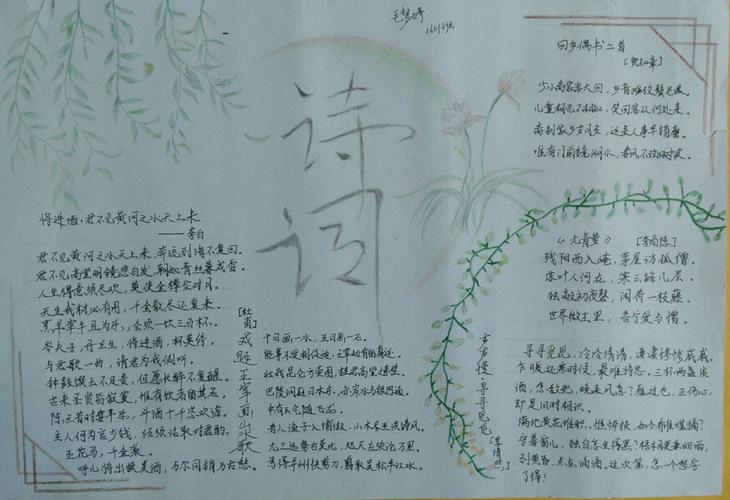 毛梦婷
1601班
诗词
回乡偶书二首
[贺知章]
少小离家老大回，乡音难改鬓毛衰。
儿童相见不相识，笑问客从何处来。
离别家乡岁月多，近来人事半销磨。
唯有门前镜湖水，春风不改旧时波。
将进酒·君不见黄河之水天上来
——李白
君不见黄河之水天上来，奔流到海不复回。
君不见高堂明镜悲白发，朝如青丝暮成雪。
人生得意须尽欢，莫使金樽空对月。
天生我材必有用，千金散尽还复来。
烹羊宰牛且为乐，会须一饮三百杯。
岑夫子，丹丘生，将进酒，杯莫停。
与君歌一曲，请君为我倾听。
钟鼓馔玉不足贵，但愿长醉不复醒。
古来圣贤皆寂寞，惟有饮者留其名。
陈王昔时宴平乐，斗酒十千恣欢谑。
主人何为言少钱，径须沽取对君酌。
五花马，千金裘，
呼儿将出换美酒，与尔同销万古愁。
[杜甫]
戏题王宰画山水歌
十日画一水，五日画一石。
能事不受相促迫，王宰始肯留真迹。
壮哉昆仑方壶图，挂君高堂之素壁。
巴陵洞庭日本东，赤岸水与银河通，
中有云气随飞龙。
舟人渔子入浦溆，山木尽亚洪涛风。
尤工远势古莫比，咫尺应须论万里。
焉得并州快剪刀，剪取吴松半江水。
《北青萝》 [李商隐]
残阳西入崦，茅屋访孤僧。
落叶人何在，寒云路几层。
独敲初夜磬，闲倚一枝藤。
世界微尘里，吾宁爱与憎。
声声慢·寻寻觅觅
[李清照]
寻寻觅觅，冷冷清清，凄凄惨惨戚戚。
乍暖还寒时候，最难将息。三杯两盏淡
酒，怎敌他，晚来风急？雁过也，正伤心，
却是旧时相识。
满地黄花堆积，憔悴损，如今有谁堪摘？
守着窗儿，独自怎生得黑？梧桐更兼细雨，
到黄昏，点点滴滴。这次第，怎一个愁字
了得！